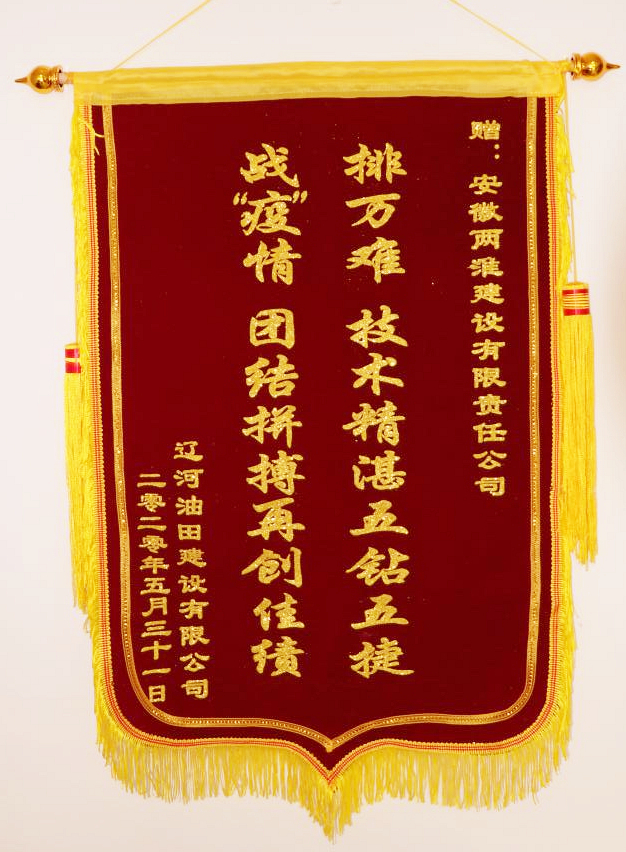 赠：安徽两淮建设有限责任公司
排万难 技术精湛五钻五捷
战“疫”情 团结拼搏再创佳绩
辽河油田建设有限公司
二零二零年五月三十一日